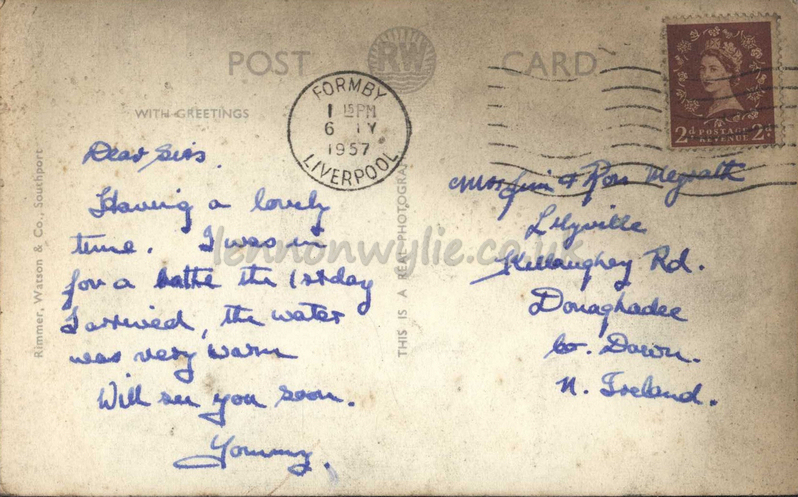 POST RW CARD
WITH GREETINGS
FORMBY
1 15 PM
6 JY
1957
LIVERPOOL
2D POSTAGE 2D
REVENUE
Dear Sirs.
Having a lovely
time. I was in
for a bathe the 1st day
I arrived, the water
was very warm
Will see you soon.
Tommy.
Jim & Ron Megrath
Lilyville
Killaughey Rd.
Donaghadee
Co. Down.
N. Ireland.
Rimmer, Watson & Co., Southport
THIS IS A REAL PHOTOGRA
lennonwylie.co.uk